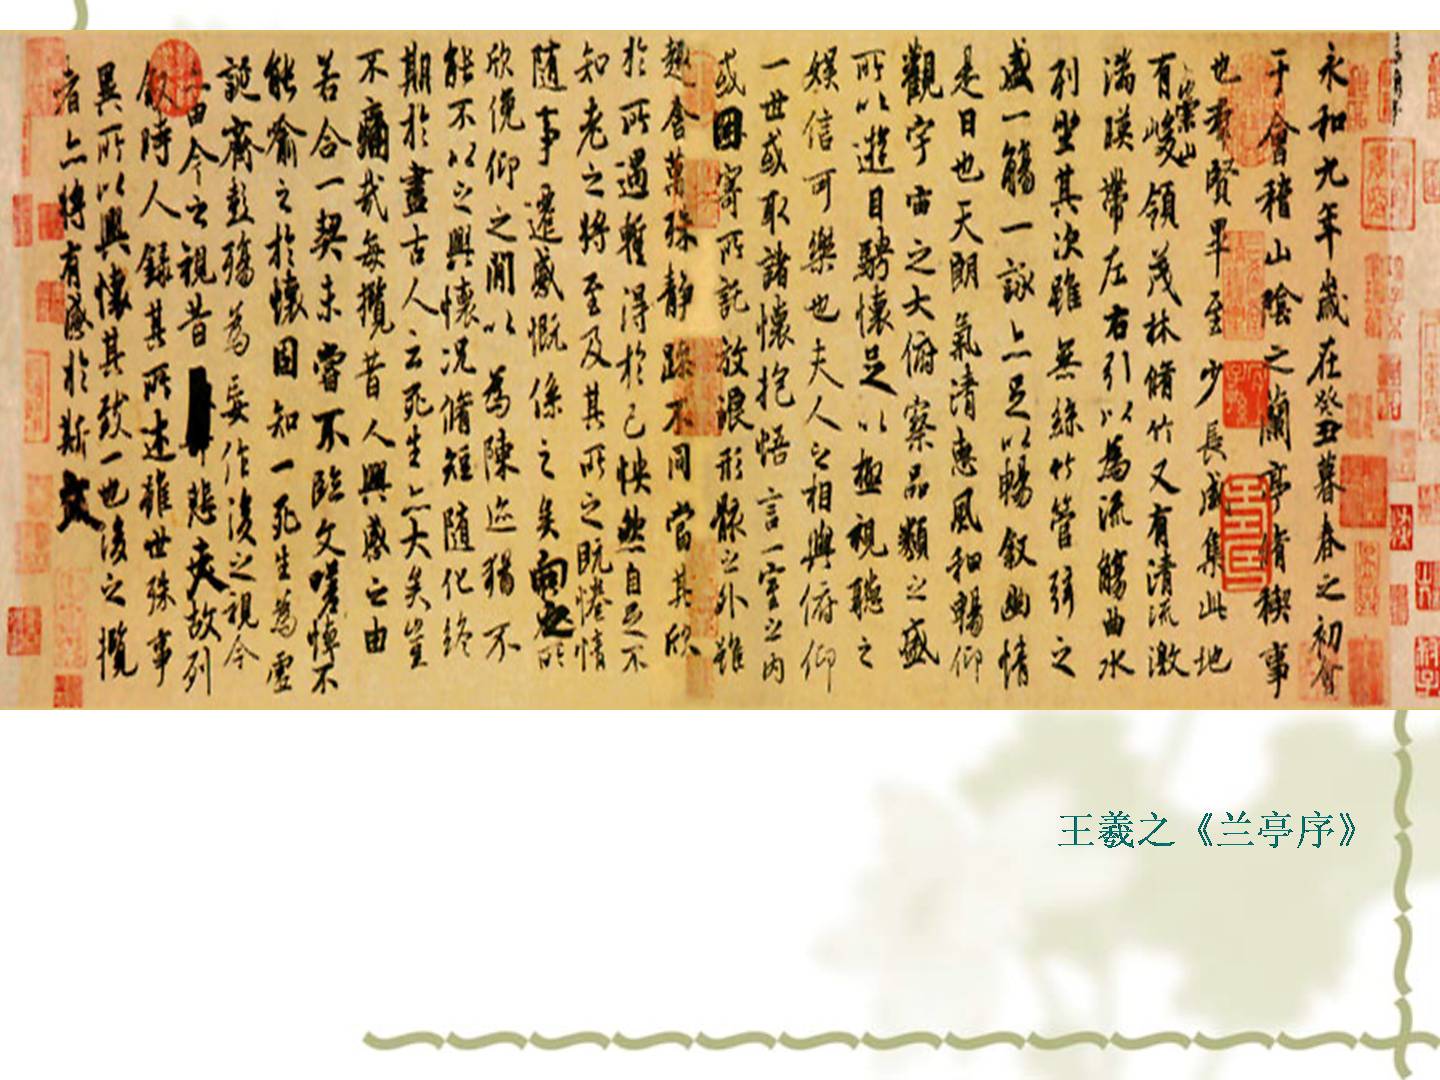 永和九年歲在癸丑暮春之初會
于會稽山陰之蘭亭脩禊事
也羣賢畢至少長咸集此地
有崇山峻領茂林脩竹又有清流激
湍暎帶左右引以為流觴曲水
列坐其次雖無絲竹管弦之
盛一觴一詠亦足以暢叙幽情
是日也天朗氣清惠風和暢仰
觀宇宙之大俯察品類之盛
所以遊目騁懷足以極視聽之
娛信可樂也夫人之相與俯仰
一世或取諸懷抱悟言一室之內
或因寄所託放浪形骸之外雖
趣舍萬殊静躁不同當其欣
於所遇蹔得於己怏然自足不
知老之將至及其所之既惓情
隨事遷感慨係之矣向之所
欣俛仰之閒以為陳迹猶不
能不以之興懷況脩短隨化終
期於盡古人云死生亦大矣豈
不痛哉每攬昔人興感之由
若合一契未嘗不臨文嗟悼不
能喻之於懷固知一死生為虛
誕齊彭殤為妄作後之視今
亦由今之視昔悲夫故列
叙時人錄其所述雖世殊事
異所以興懷其致一也後之攬
者亦將有感於斯文
王羲之《兰亭序》